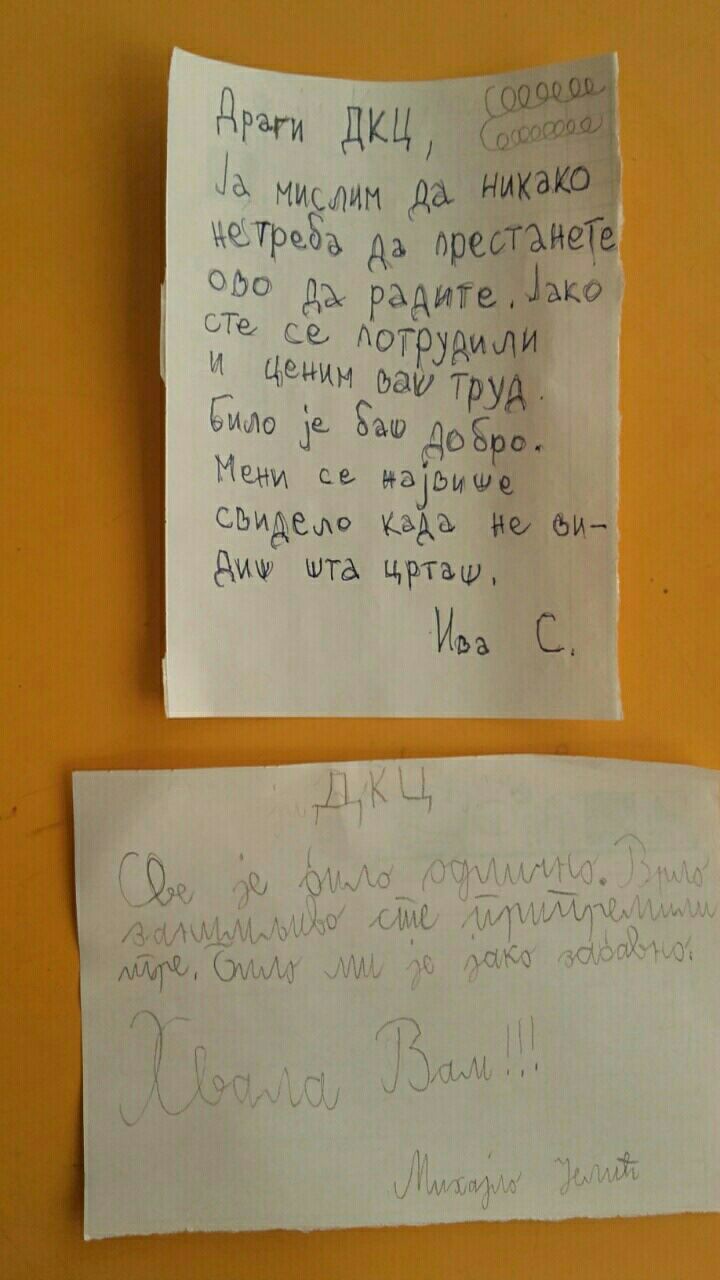 Драги ДКЦ,
Ја мислим да никако
нетреба да престанете
ово да радите. Јако
сте се потрудили
и ценим ваш труд.
Било је баш добро.
Мени се највише
свидело када не ви-
диш шта црташ.
Ива С.
ДКЦ
Све је било одлично. Врло
занимљиво сте припремили
игре. Било ми је јако забавно.
Хвала Вам!!!
Михајло